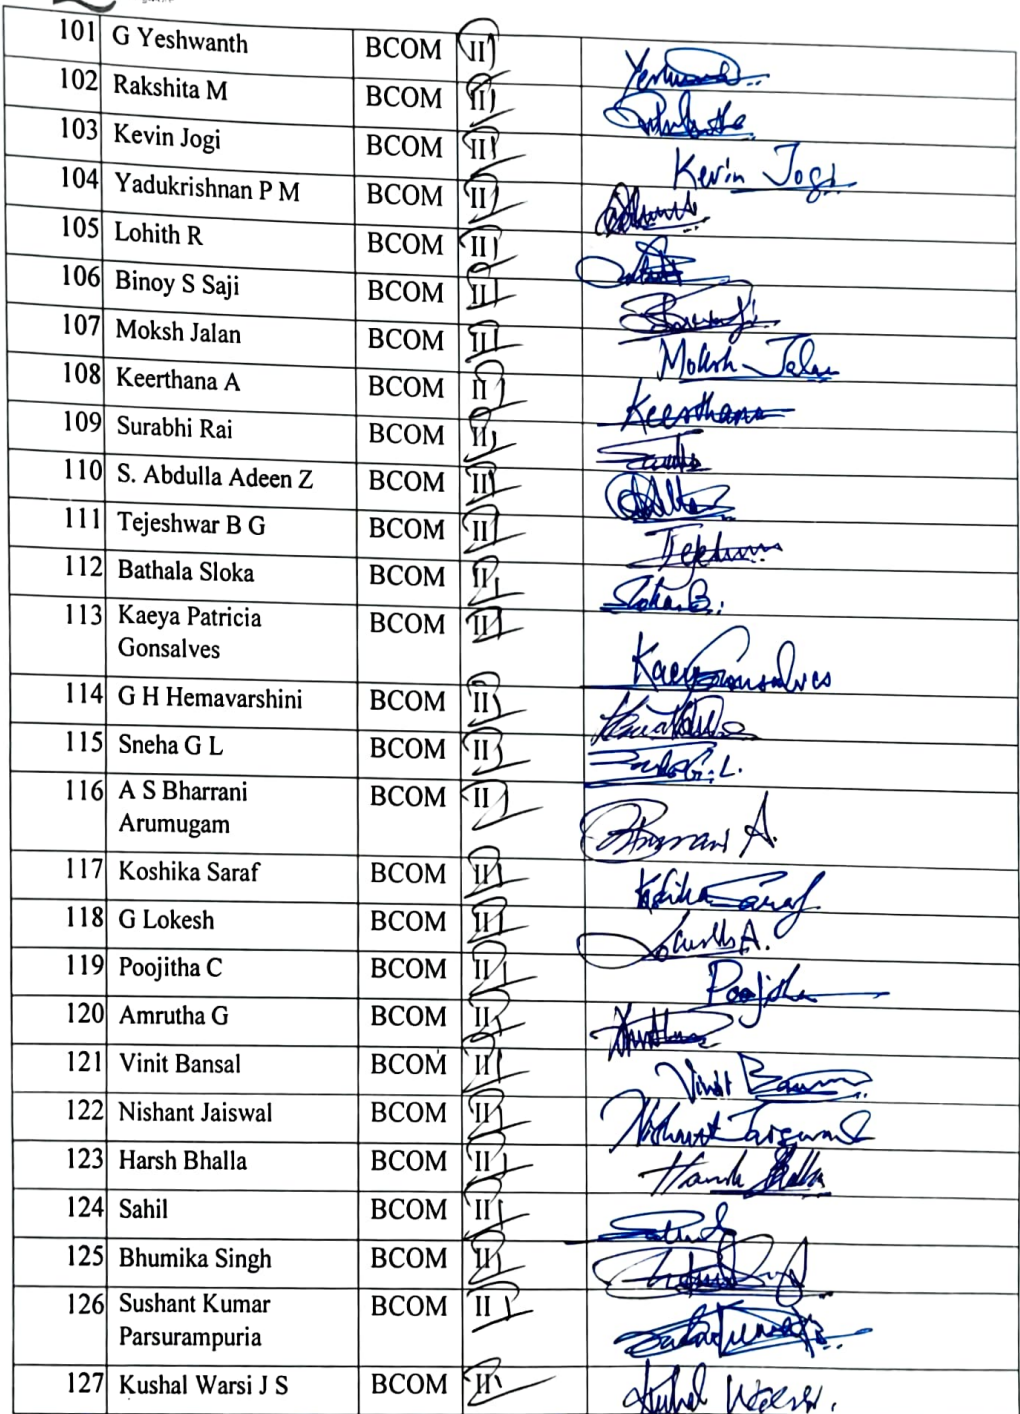 101 G Yeshwanth BCOM II
102 Rakshita M BCOM II
103 Kevin Jogi BCOM II Kevin Jogi
104 Yadukrishnan P M BCOM II
105 Lohith R BCOM II
106 Binoy S Saji BCOM II
107 Moksh Jalan BCOM II Moksh Jalan
108 Keerthana A BCOM II Keerthana
109 Surabhi Rai BCOM II
110 S. Abdulla Adeen Z BCOM II
111 Tejeshwar B G BCOM II
112 Bathala Sloka BCOM II Sloka B.
113 Kaeya Patricia BCOM II
Gonsalves Kaeya Gonsalves
114 G H Hemavarshini BCOM II
115 Sneha G L BCOM II
116 A S Bharrani BCOM II
Arumugam
117 Koshika Saraf BCOM II Koshika Saraf
118 G Lokesh BCOM II
119 Poojitha C BCOM II Poojitha
120 Amrutha G BCOM II
121 Vinit Bansal BCOM II Vinit
122 Nishant Jaiswal BCOM II Nishant Jaiswal
123 Harsh Bhalla BCOM II Harsh Bhalla
124 Sahil BCOM II
125 Bhumika Singh BCOM II
126 Sushant Kumar BCOM II
Parsurampuria
127 Kushal Warsi J S BCOM II Kushal Warsi